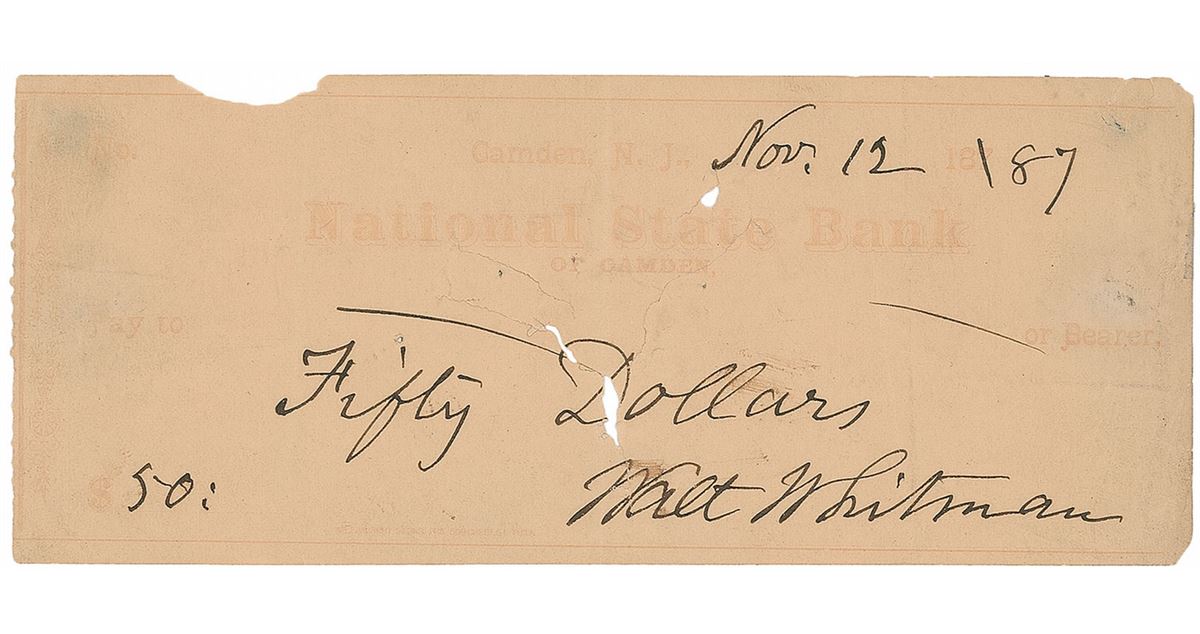 No. Camden, N. J., Nov. 12 187 \87
National State Bank
OF CAMDEN,
Pay to or Bearer,
Fifty Dollars
$ 50:
Walt Whitman